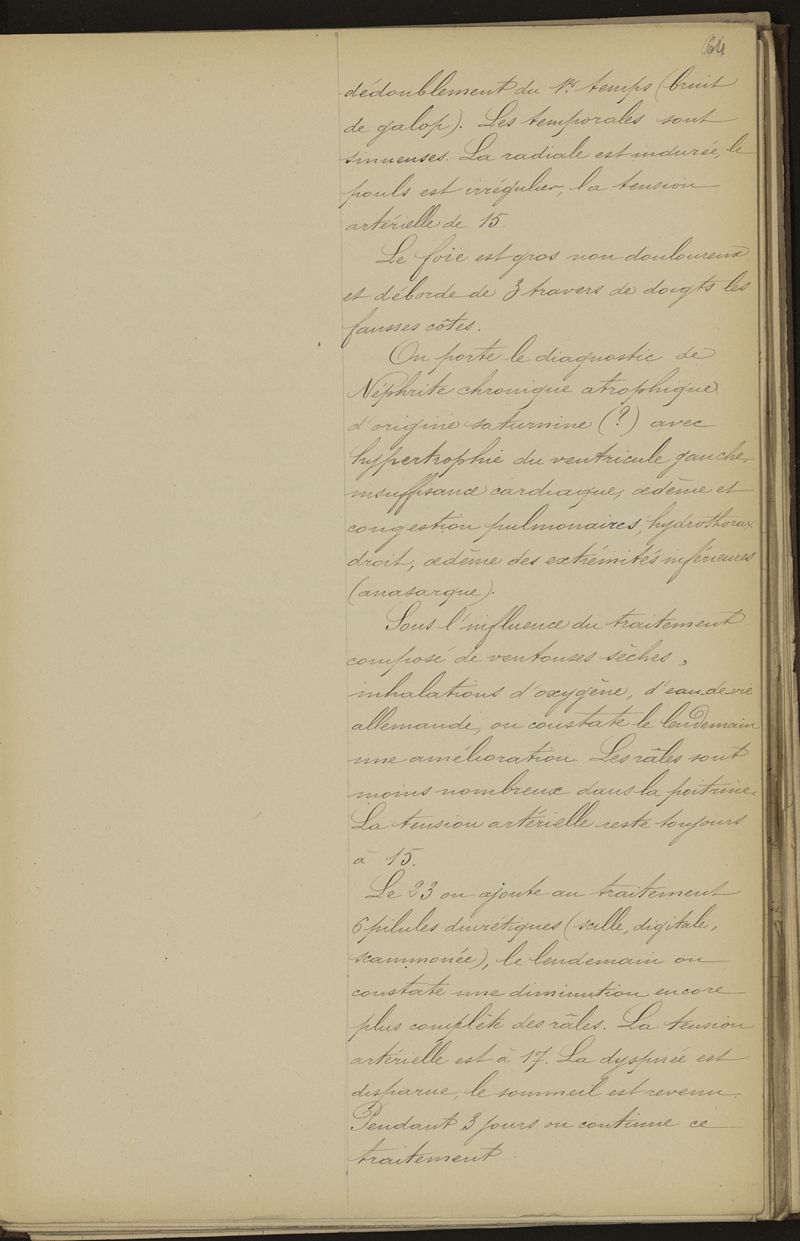 64
dédoublement du 1er temps (bruit
de galop). Les temporales sont
sinueuses. La radiale est indurée, le
pouls est irrégulier, la tension
artérielle de 15.
Le foie est gros non douloureux
et déborde de 3 travers de doigts les
fausses côtes.
On porte le diagnostic de
Néphrite chronique atrophique
d'origine saturnine (?) avec
hypertrophie du ventricule gauche,
insuffisance cardiaque, œdème et
congestion pulmonaires, hydrothorax
droit, œdème des extrémités inférieures
(anasarque).
Sous l'influence du traitement
composé de ventouses sèches,
inhalations d'oxygène, d'eau de vie
allemande, on constate le lendemain
une amélioration. Les râles sont
moins nombreux dans la poitrine.
La tension artérielle reste toujours
à 15.
Le 23 on ajoute au traitement
6 pilules diurétiques (scille, digitale,
scammonée), le lendemain on
constate une diminution encore
plus complète des râles. La tension
artérielle est à 17. La dyspnée est
disparue, le sommeil est revenu.
Pendant 3 jours on continue ce
traitement